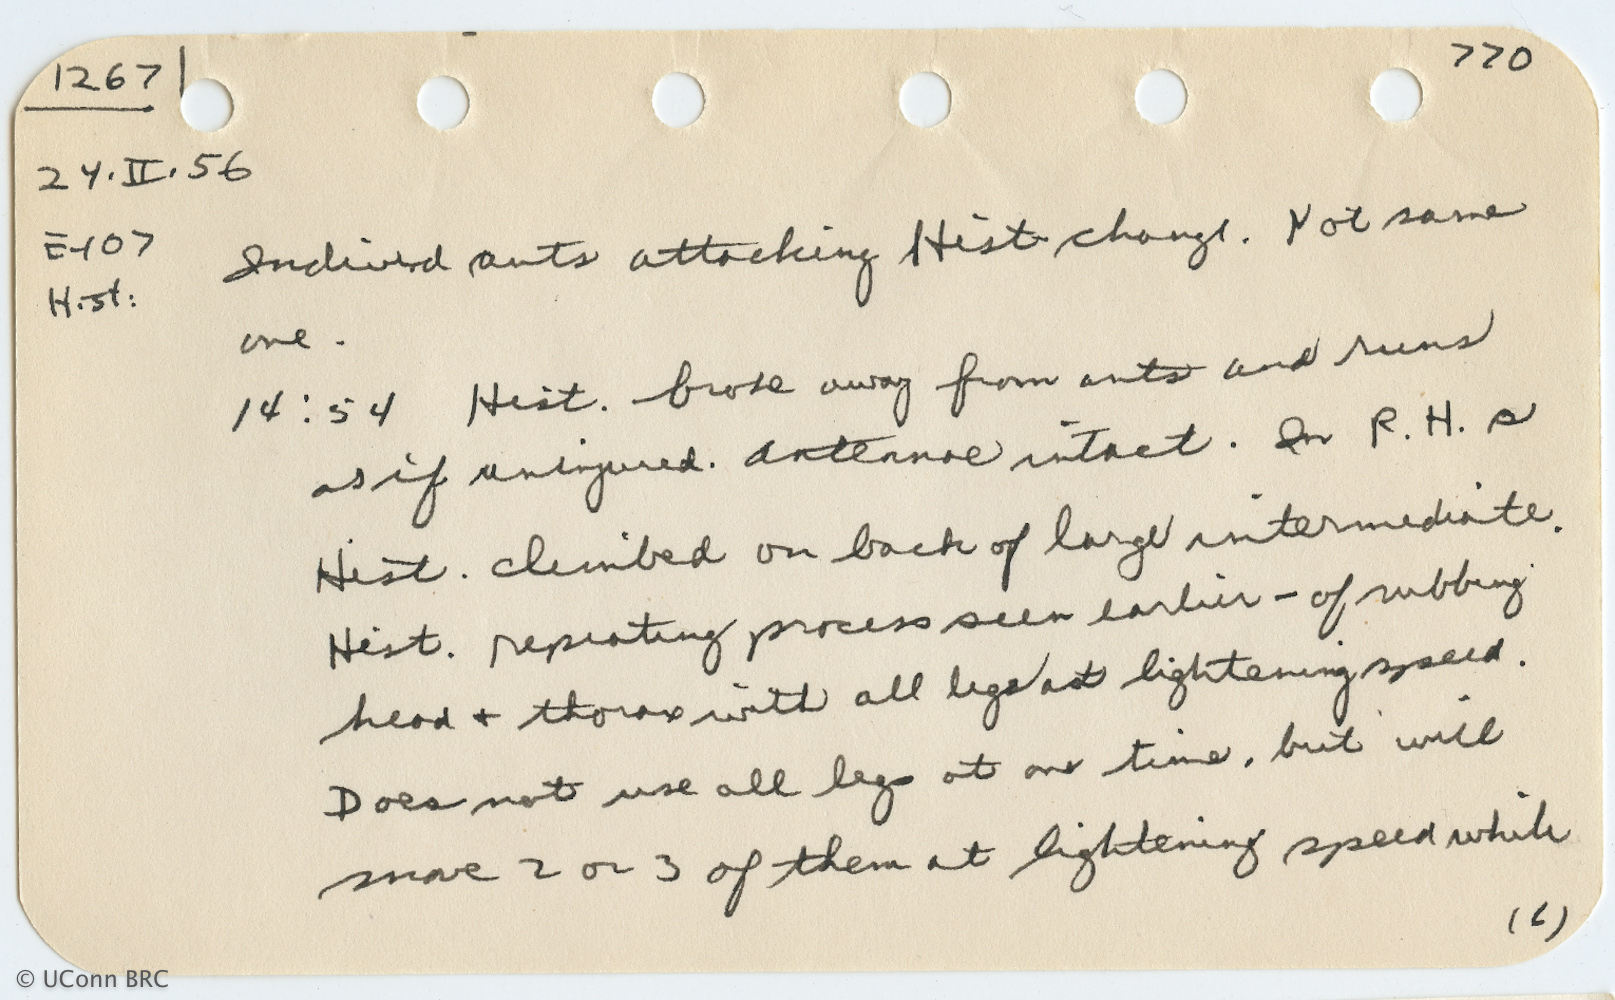 1267
770
24.II.56
E-107
Hist:
Individ ants attacking Hist. change. Not same
one.
14:54 Hist. broke away from ants and runs
as if uninjured. Antennae intact. In P.H. a
Hist. climbed on back of large intermediate.
Hist. repeating process seen earlier - of rubbing
head + thorax with all legs at lightening speed.
Does not use all legs at one time, but will
move 2 or 3 of them at lightening speed while
(6)
© UConn BRC